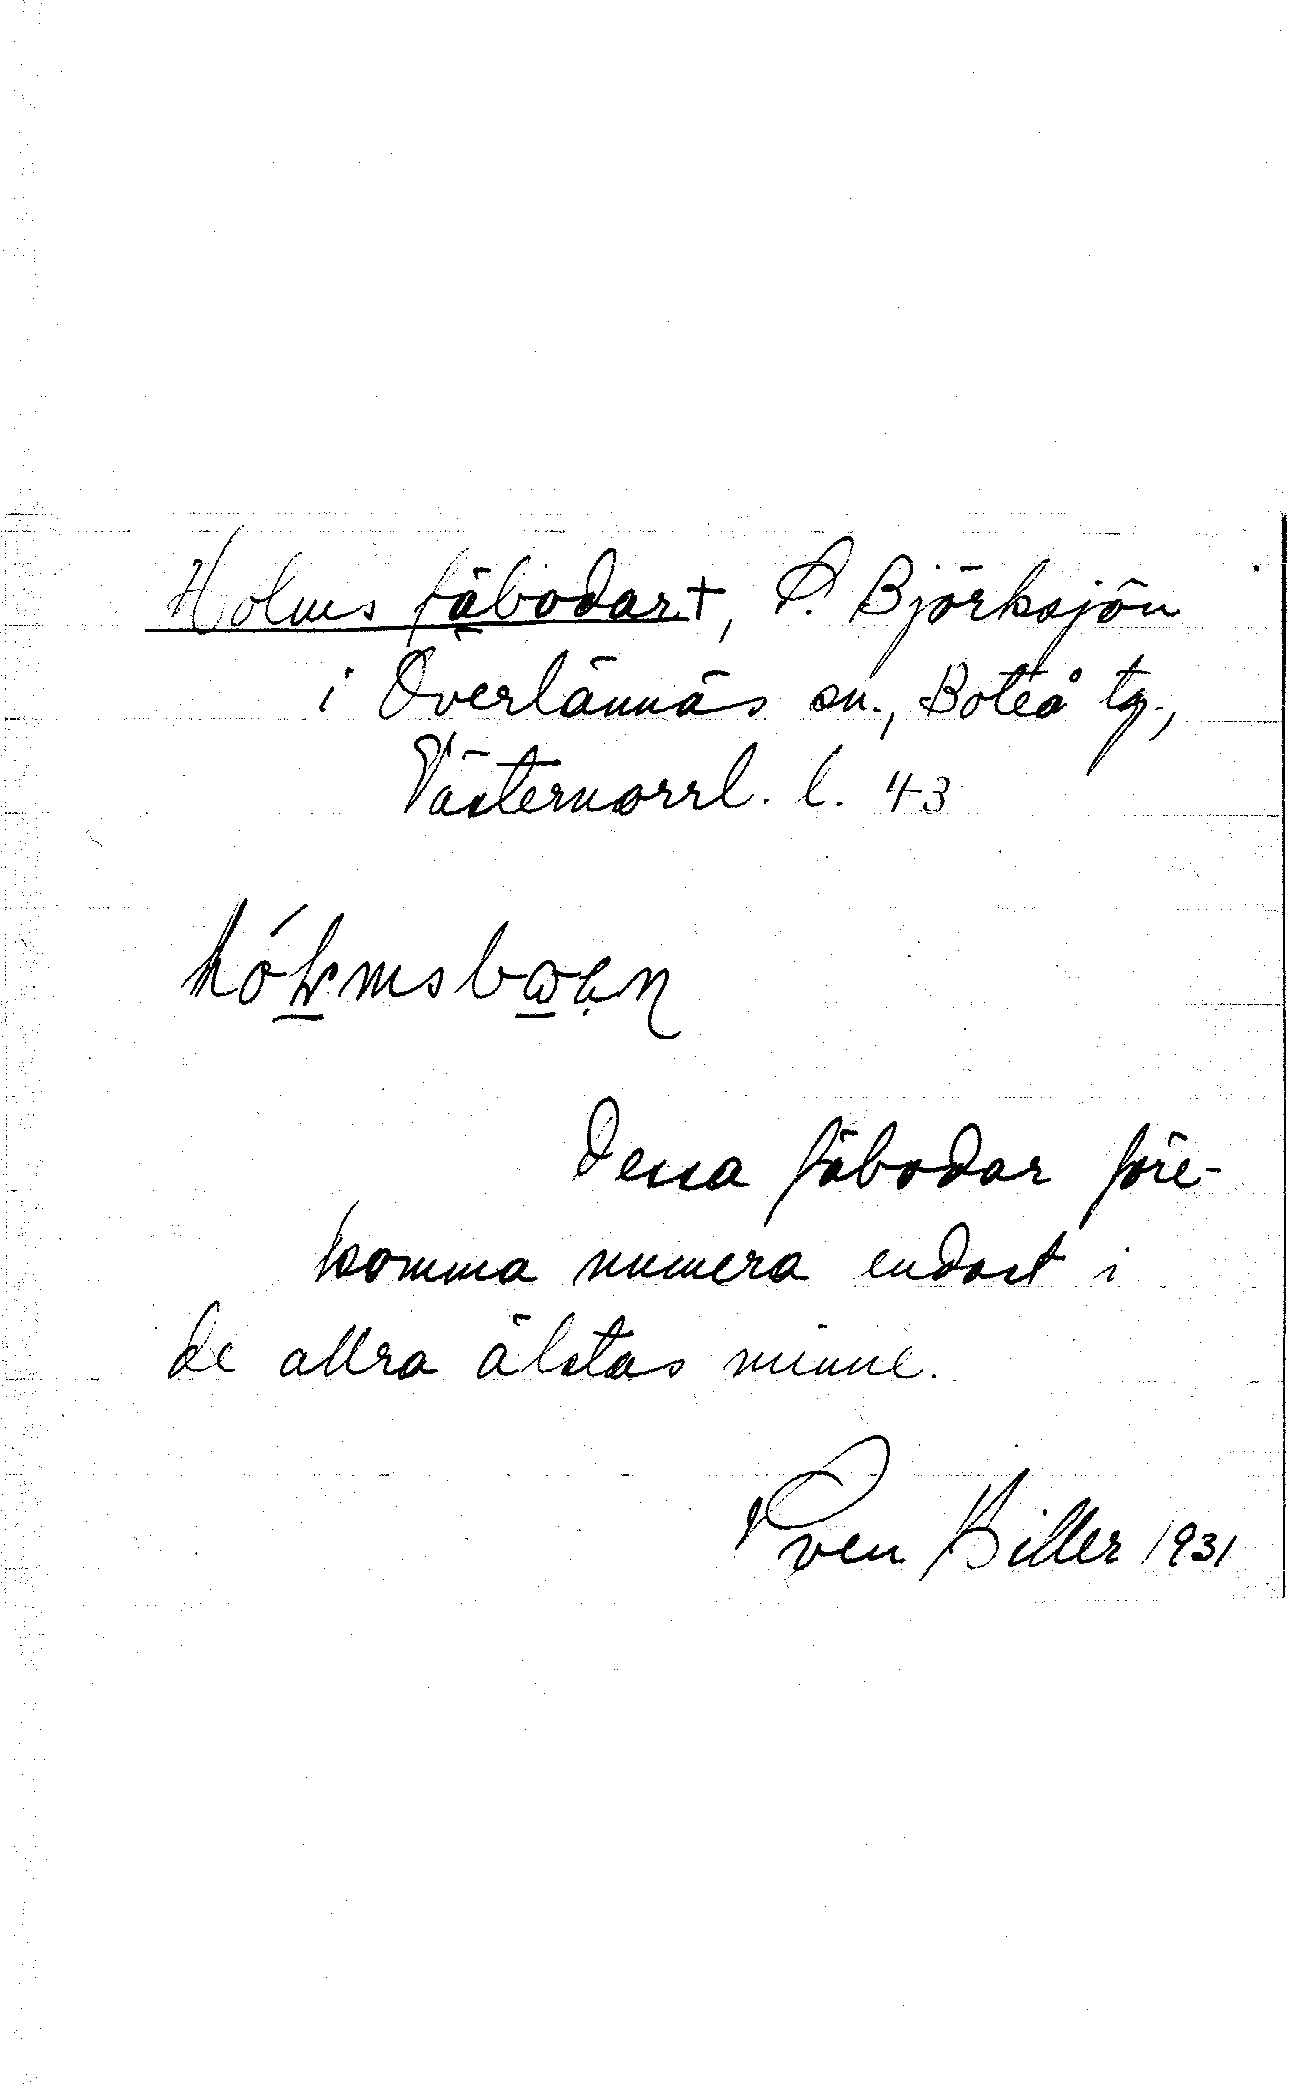 Holms fäbodar †, S. Björksjön
i Överlännäs sn., Boteå tg.,
Västernorrl. l. 43
Dessa fäbodar före-
komma numera endast i
de allra älstas minne.
Sven Biller 1931